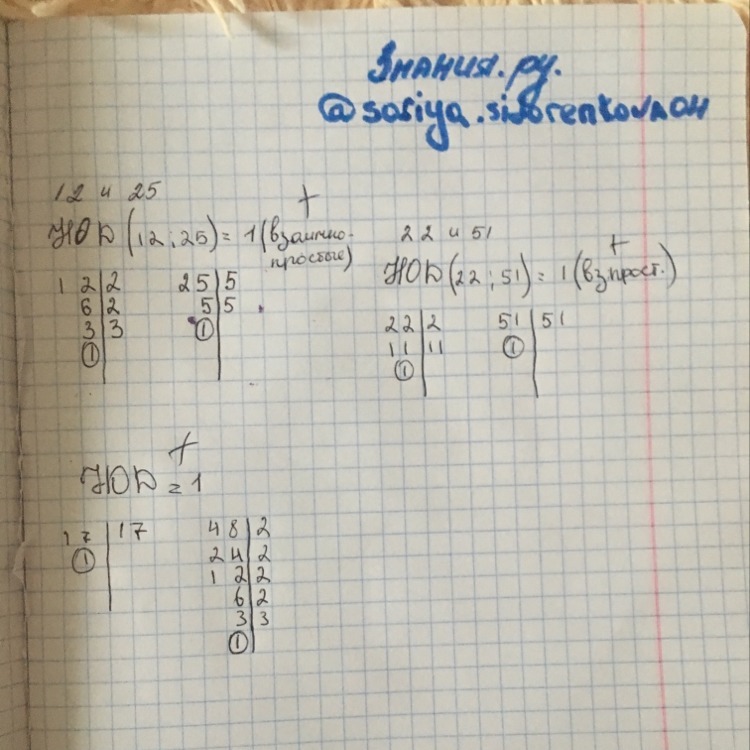 Знания.ру.
@sofiya.sidorenkovaон
12 и 25
+
НОД (12;25) = 1 (взаимно-
простые)
12 | 2
6 | 2
3 | 3
1
25 | 5
5 | 5
1
22 и 51
+
НОД (22;51) = 1 (вз.прост.)
22 | 2
11 | 11
1
51 | 51
1
+
НОД = 1
17 | 17
1
48 | 2
24 | 2
12 | 2
6 | 2
3 | 3
1